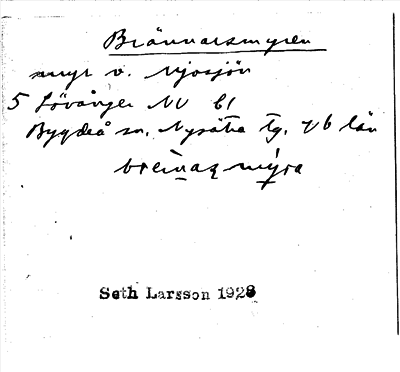 Brännarsmyren
myr v. Mjosjön
5 Lövånger NV b1
Bygdeå sn. Nysätra tg. Vb län
breìnaʂmýra
Seth Larsson 1928